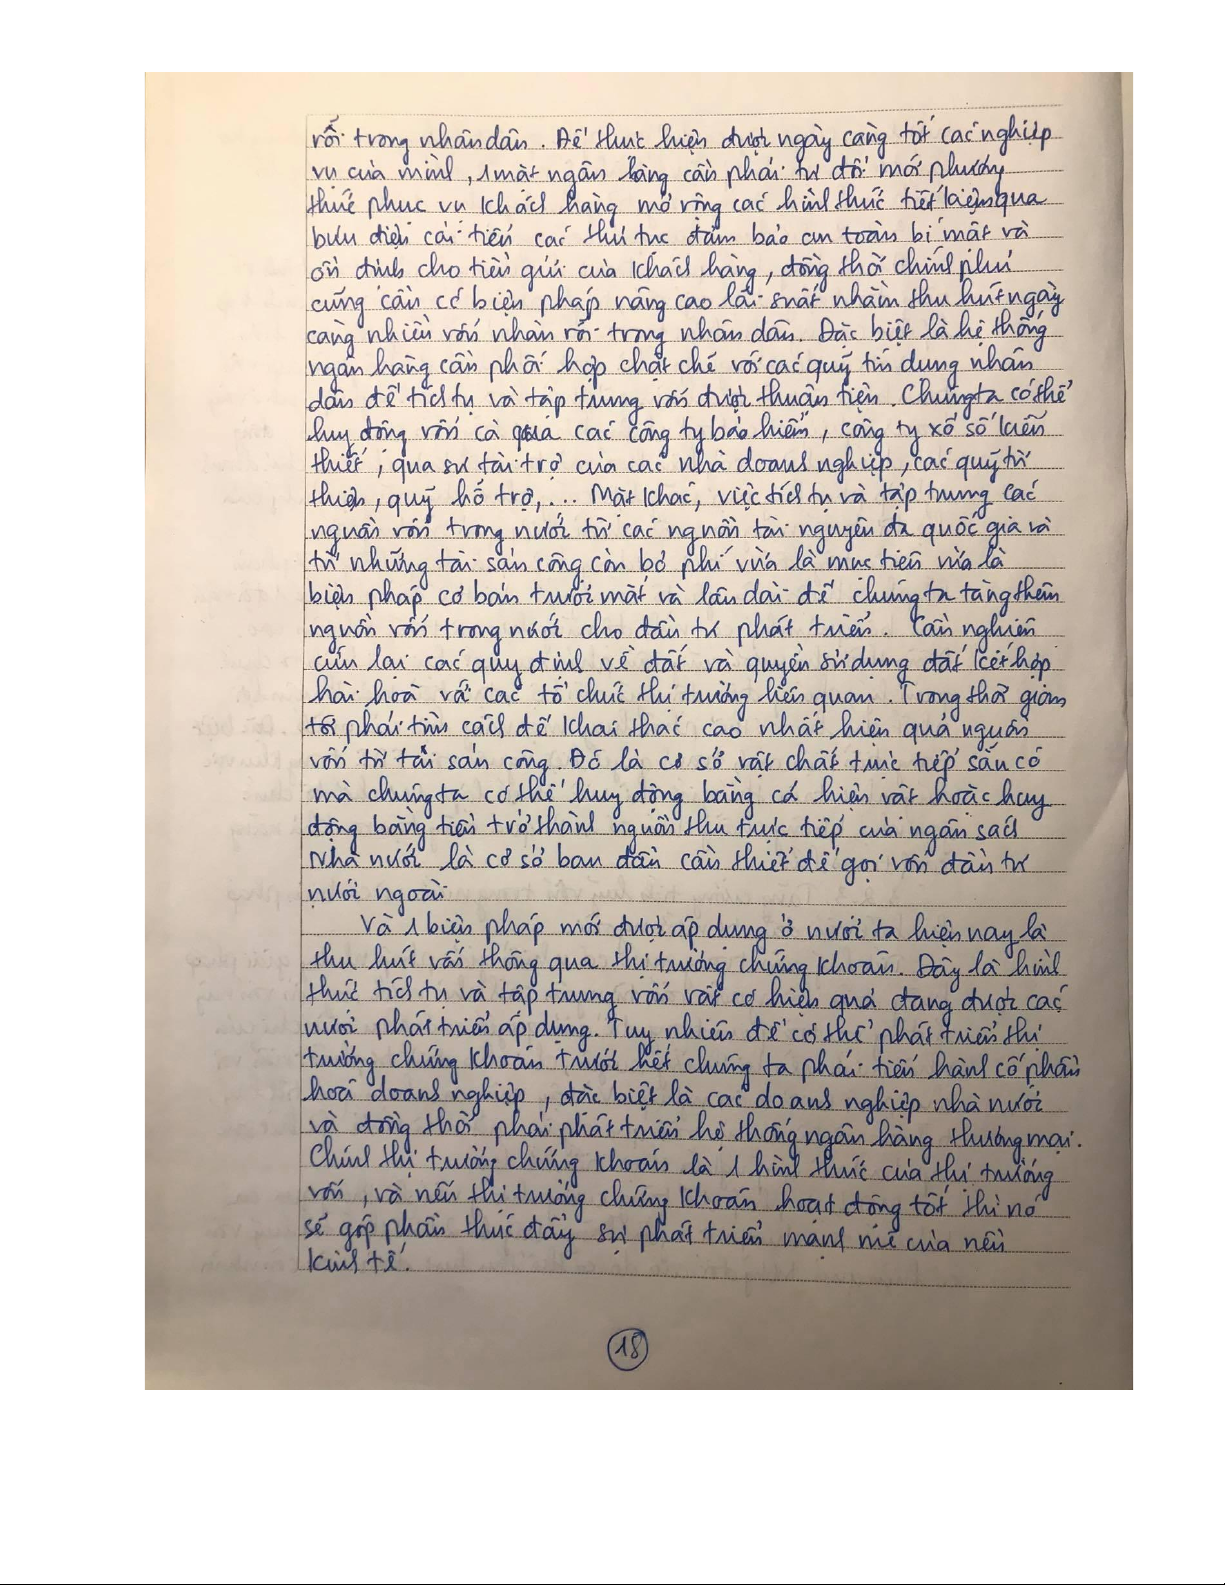 rỗi trong nhân dân. Để thực hiện được ngày càng tốt các nghiệp
vụ của mình, 1 mặt ngân hàng cần phải tự đổi mới phương
thức phục vụ khách hàng mở rộng các hình thức tiết kiệm qua
bưu điện cải tiến các thủ tục đảm bảo an toàn bí mật và
ổn định cho tiền gửi của khách hàng, đồng thời chính phủ
cũng cần có biện pháp nâng cao lãi suất nhằm thu hút ngày
càng nhiều vốn nhàn rỗi trong nhân dân. Đặc biệt là hệ thống
ngân hàng cần phối hợp chặt chẽ với các quỹ tín dụng nhân
dân để tích tụ và tập trung vốn được thuận tiện. Chúng ta có thể
huy động vốn cả qua các công ty bảo hiểm, công ty xổ số kiến
thiết, qua sự tài trợ của các nhà doanh nghiệp, các quỹ từ
thiện, quỹ hỗ trợ,... Mặt khác, việc tích tụ và tập trung các
nguồn vốn trong nước từ các nguồn tài nguyên đa quốc gia và
từ những tài sản công còn bỏ phí vừa là mục tiêu vừa là
biện pháp cơ bản trước mắt và lâu dài để chúng ta tăng thêm
nguồn vốn trong nước cho đầu tư phát triển. Cần nghiên
cứu lại các quy định về đất và quyền sử dụng đất kết hợp
hài hoà với các tổ chức thị trường liên quan. Trong thời gian
tới phải tìm cách để khai thác cao nhất hiệu quả nguồn
vốn từ tài sản công. Đó là cơ sở vật chất trực tiếp sẵn có
mà chúng ta có thể huy động bằng cả hiện vật hoặc huy
động bằng tiền trở thành nguồn thu trực tiếp của ngân sách
Nhà nước là cơ sở ban đầu cần thiết để gọi vốn đầu tư
nước ngoài.
Và 1 biện pháp mới được áp dụng ở nước ta hiện nay là
thu hút vốn thông qua thị trường chứng khoán. Đây là hình
thức tích tụ và tập trung vốn rất có hiệu quả đang được các
nước phát triển áp dụng. Tuy nhiên để có thể phát triển thị
trường chứng khoán trước hết chúng ta phải tiến hành cổ phần
hoá doanh nghiệp, đặc biệt là các doanh nghiệp nhà nước
và đồng thời phải phát triển hệ thống ngân hàng thương mại.
Chính thị trường chứng khoán là 1 hình thức của thị trường
vốn, và nếu thị trường chứng khoán hoạt động tốt thì nó
sẽ góp phần thúc đẩy sự phát triển mạnh mẽ của nền
kinh tế.
18